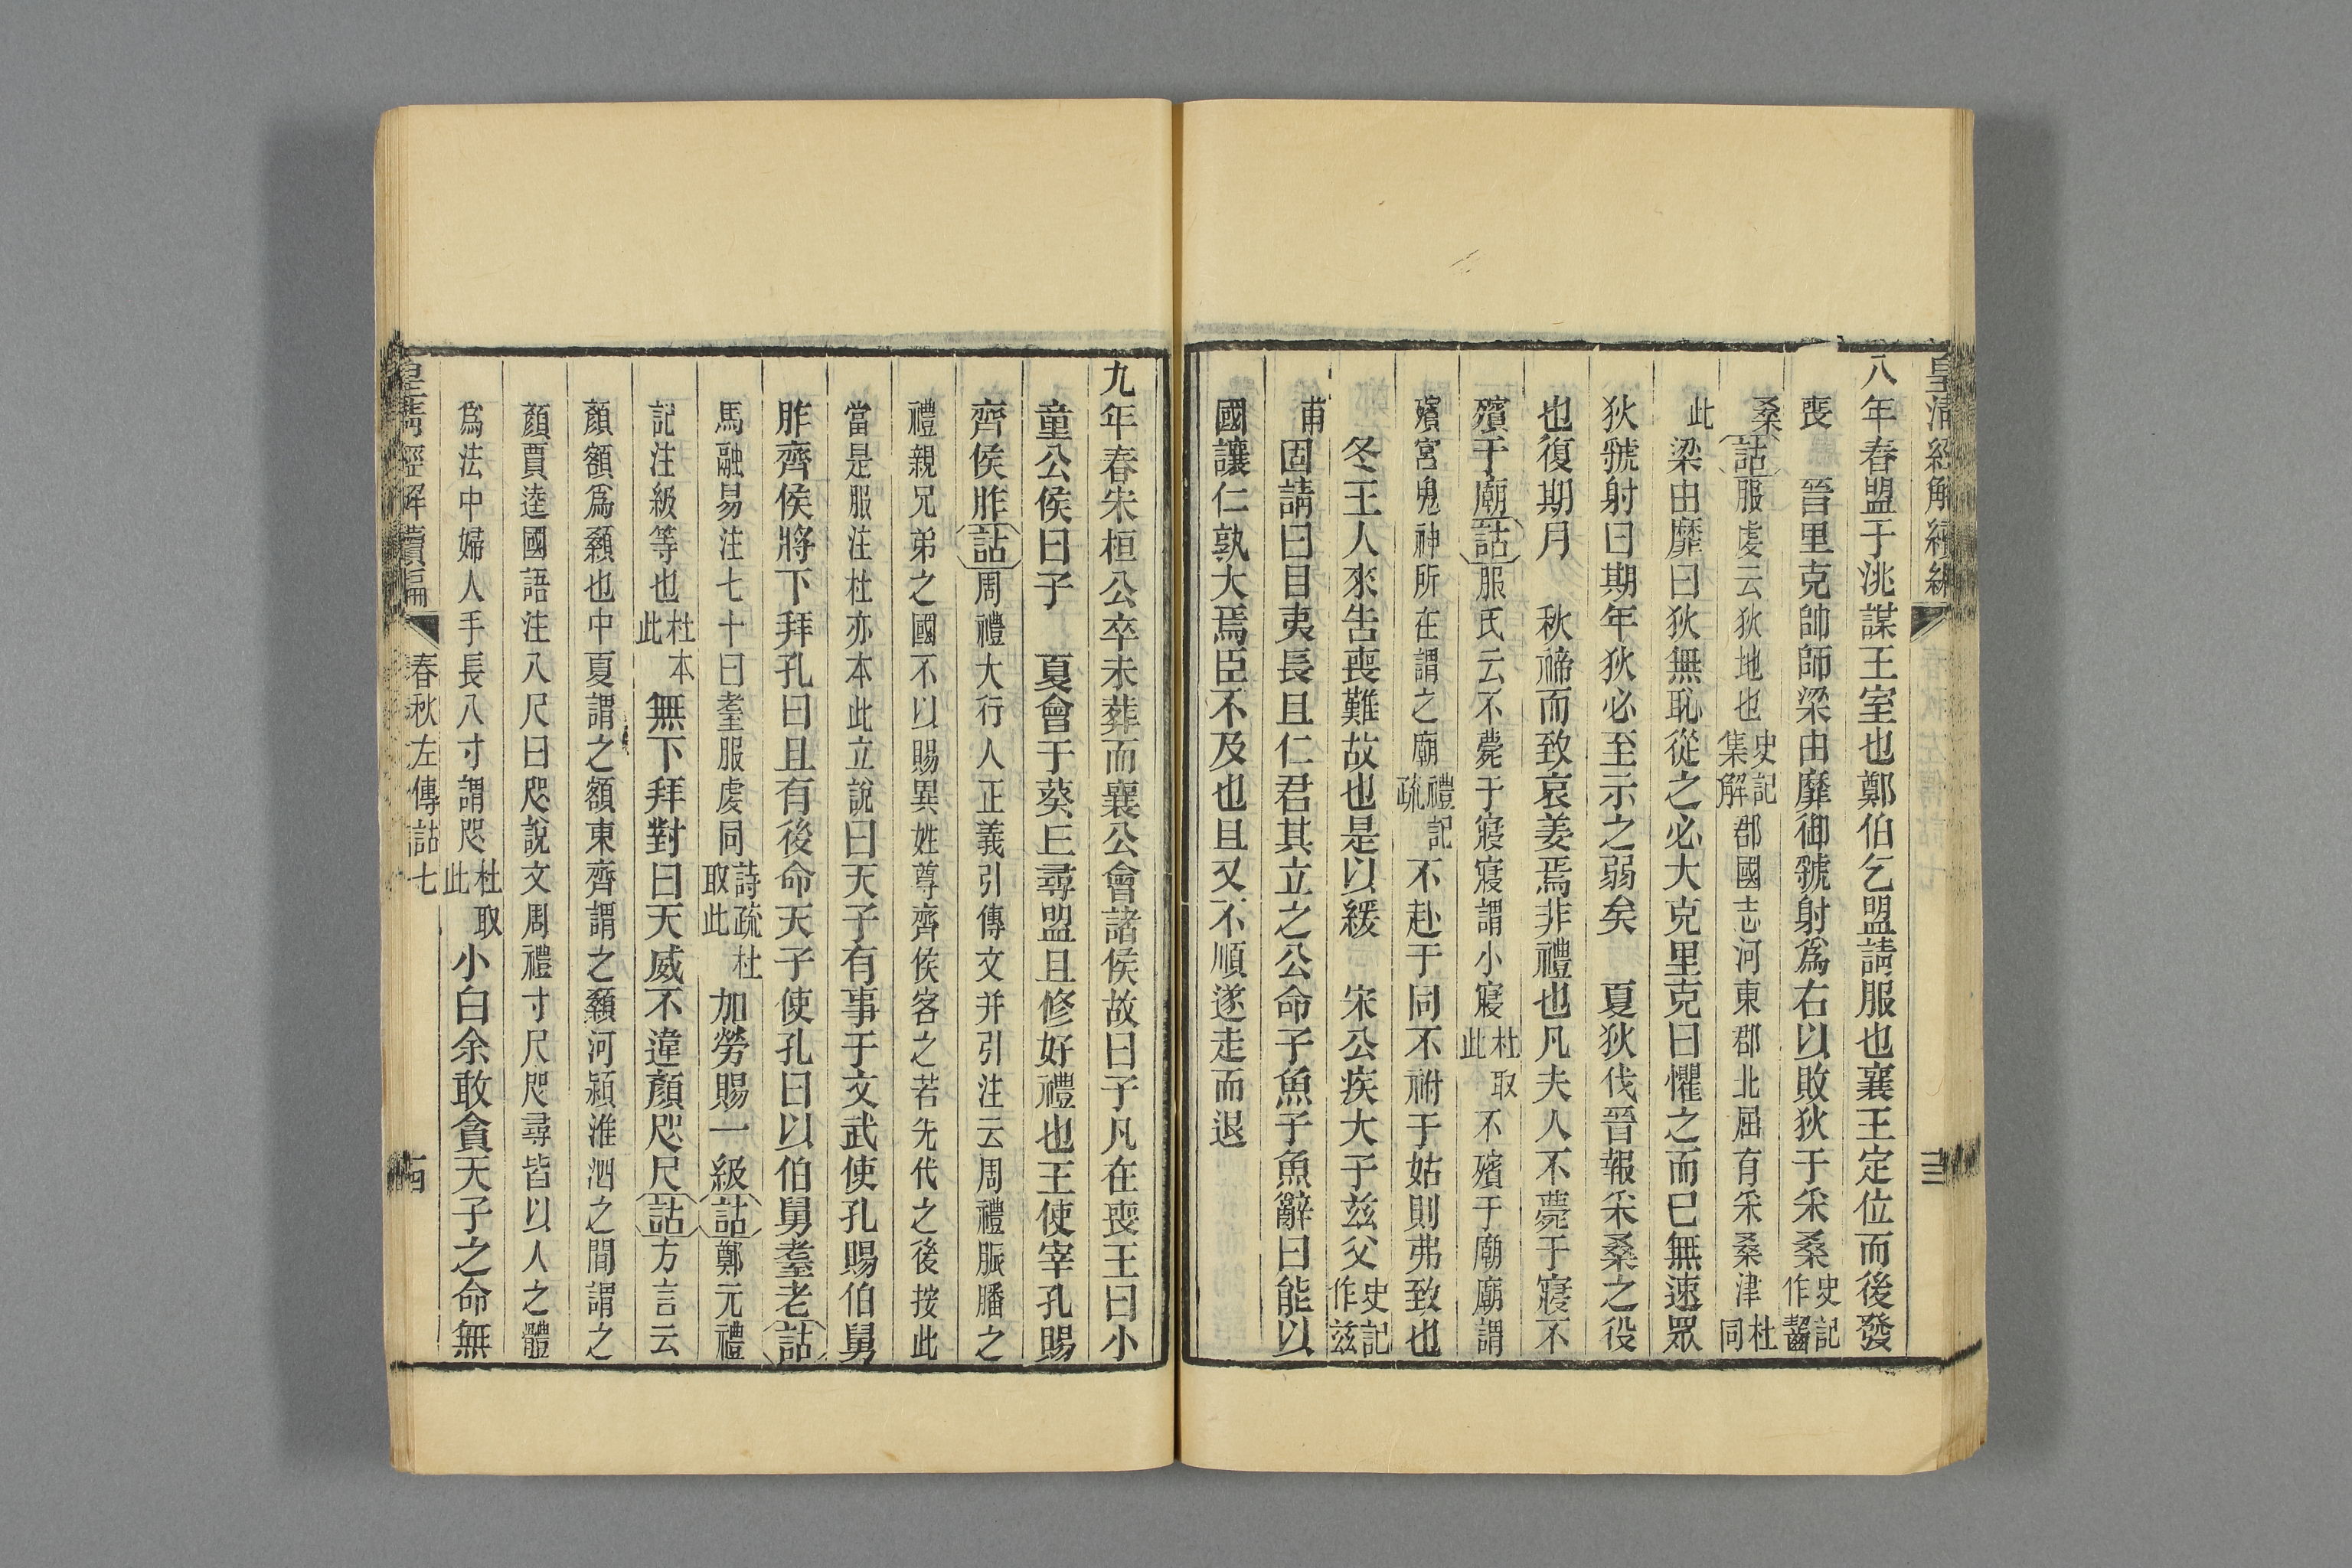 皇清經解續編
三
八年春盟于洮謀王室也鄭伯乞盟請服也襄王定位而後發
喪　晉里克帥師梁由靡御虢射爲右以敗狄于采桑史記作齧
桑詁服虔云狄地也史記集解郡國志河東郡北屈有采桑津杜同
此梁由靡曰狄無恥從之必大克里克曰懼之而已無速眾
狄虢射曰期年狄必至示之弱矣　夏狄伐晉報采桑之役
也復期月　秋禘而致哀姜焉非禮也凡夫人不薨于寢不
殯于廟詁服氏云不薨于寢寢謂小寢杜取此不殯于廟廟謂
殯宮鬼神所在謂之廟禮記疏不赴于同不祔于姑則弗致也
冬王人來告喪難故也是以緩　宋公疾大子兹父史記作兹
甫固請曰目夷長且仁君其立之公命子魚子魚辭曰能以
國讓仁孰大焉臣不及也且又不順遂走而退
九年春宋桓公卒未葬而襄公會諸侯故曰子凡在喪王曰小
童公侯曰子　夏會于葵丘尋盟且修好禮也王使宰孔賜
齊侯胙詁周禮大行人正義引傳文并引注云周禮脤膰之
禮親兄弟之國不以賜異姓尊齊侯客之若先代之後按此
當是服注杜亦本此立說曰天子有事于文武使孔賜伯舅
胙齊侯將下拜孔曰且有後命天子使孔曰以伯舅耋老詁
馬融易注七十曰耋服虔同詩疏杜取此加勞賜一級詁鄭元禮
記注級等也杜本此無下拜對曰天威不違顏咫尺詁方言云
顏額爲顙也中夏謂之額東齊謂之顙河潁淮泗之間謂之
顏賈逵國語注八尺曰咫說文周禮寸尺咫尋皆以人之體
爲法中婦人手長八寸謂咫杜取此小白余敢貪天子之命無
皇清經解續編
春秋左傳詁七